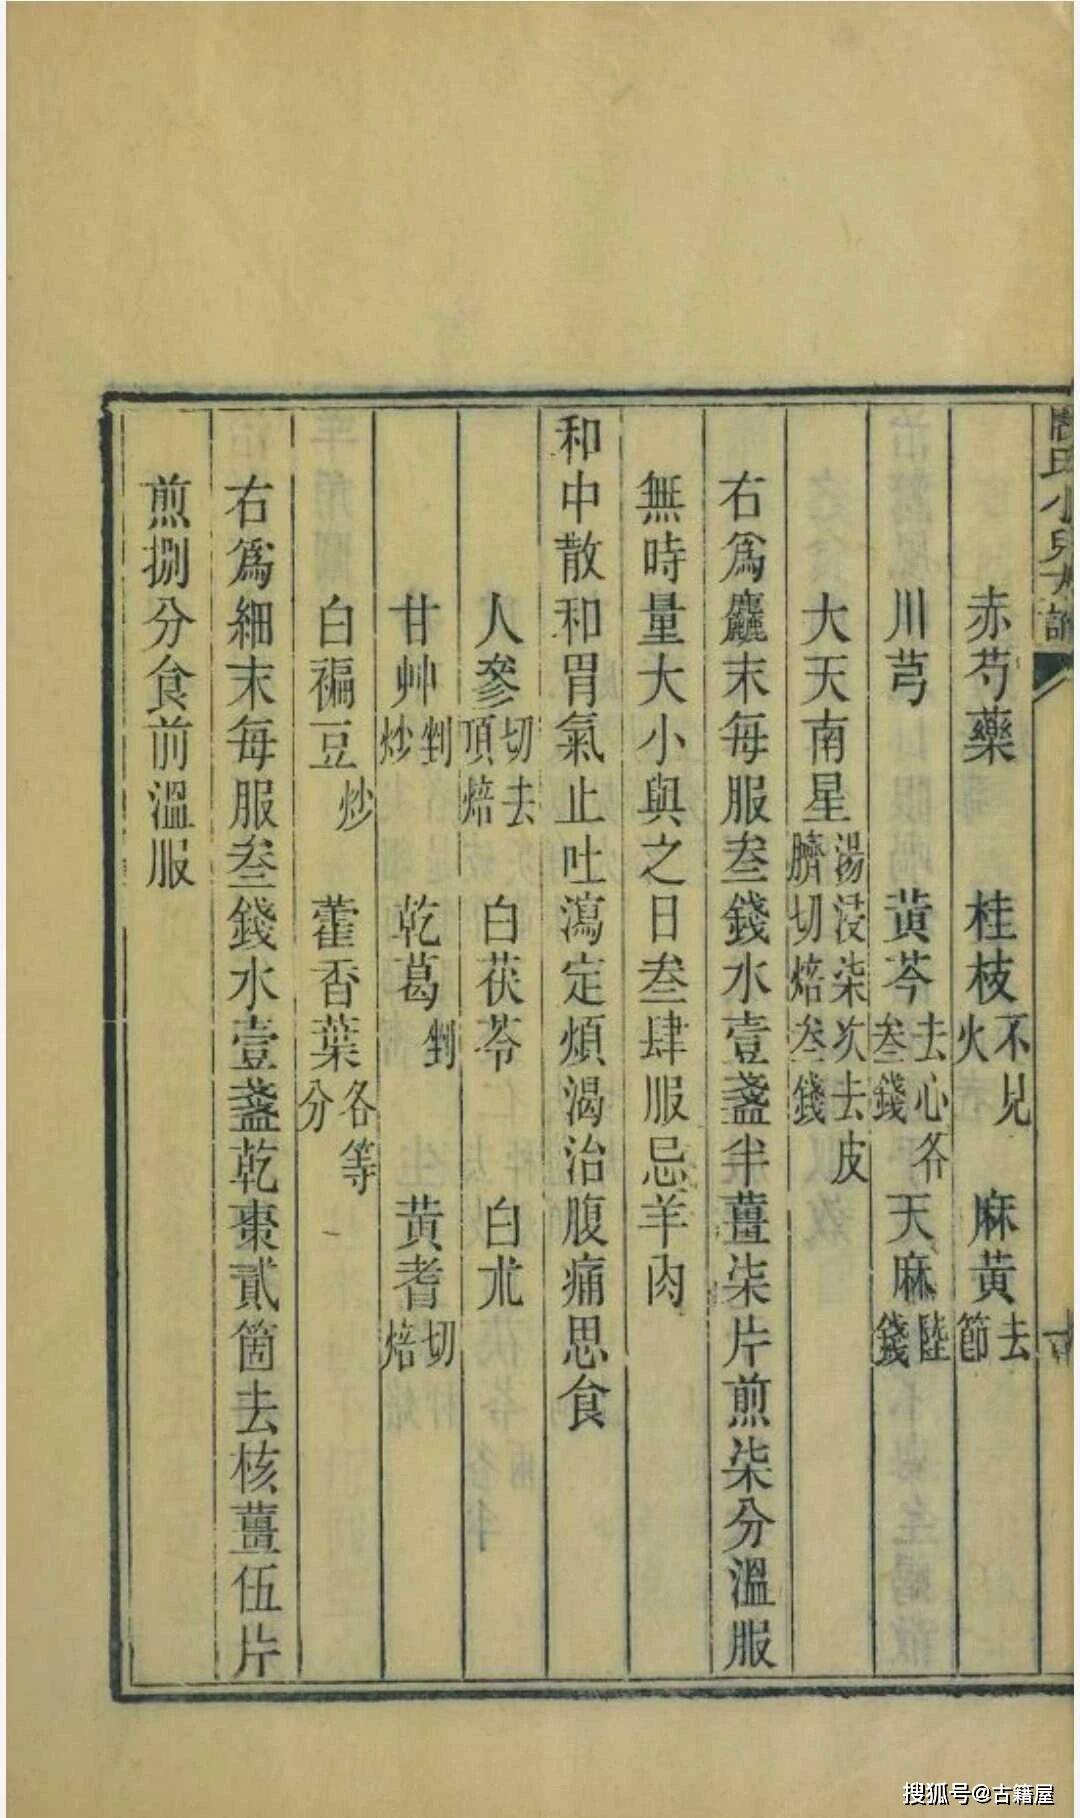 赤芍藥 桂枝不見火 麻黃去節
川芎 黃芩去心各叁錢 天麻陸錢
大天南星湯浸柒次去皮臍切焙叁錢
右爲麤末每服叁錢水壹盞半薑柒片煎柒分溫服
無時量大小與之日叁肆服忌羊肉
和中散和胃氣止吐瀉定煩渴治腹痛思食
人參切去頂焙 白茯苓 白朮
甘艸剉炒 乾葛剉 黃耆切焙
白稨豆炒 藿香葉各等分
右爲細末每服叁錢水壹盞乾棗貳箇去核薑伍片
煎捌分食前溫服
搜狐号@古籍屋